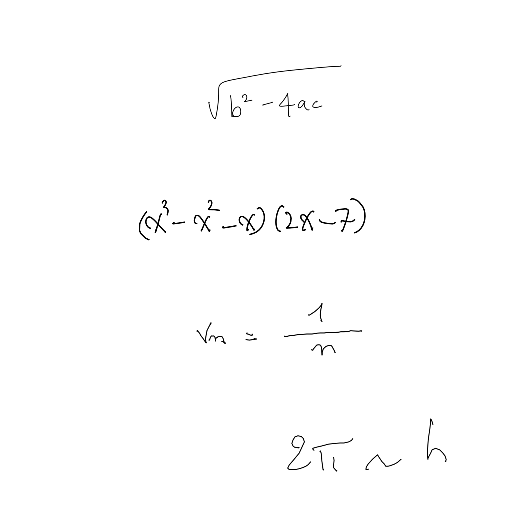 √(b² - 4ac)
(x³ - x² - x) (2x - 7)
vₙ = 1/n
2π ~ h